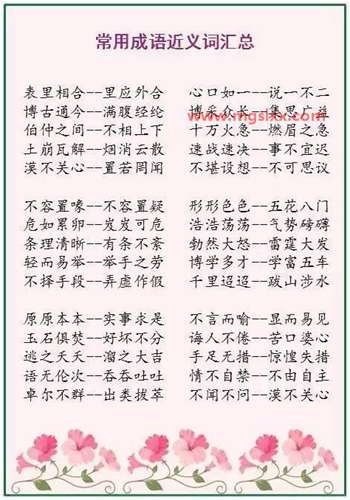 常用成语近义词汇总
表里相合--里应外合 心口如一--说一不二
博古通今--满腹经纶 博采众长--集思广益
www.mgslxx.com
伯仲之间--不相上下 十万火急--燃眉之急
土崩瓦解--烟消云散 速战速决--事不宜迟
漠不关心--置若罔闻 不堪设想--不可思议
不容置喙--不容置疑 形形色色--五花八门
危如累卵--岌岌可危 浩浩荡荡--气势磅礴
条理清晰--有条不紊 勃然大怒--雷霆大发
轻而易举--举手之劳 博学多才--学富五车
不择手段--弄虚作假 千里迢迢--跋山涉水
原原本本--实事求是 不言而喻--显而易见
玉石俱焚--好坏不分 诲人不倦--苦口婆心
逃之夭夭--溜之大吉 手足无措--惊惶失措
语无伦次--吞吞吐吐 情不自禁--不由自主
卓尔不群--出类拔萃 不闻不问--漠不关心